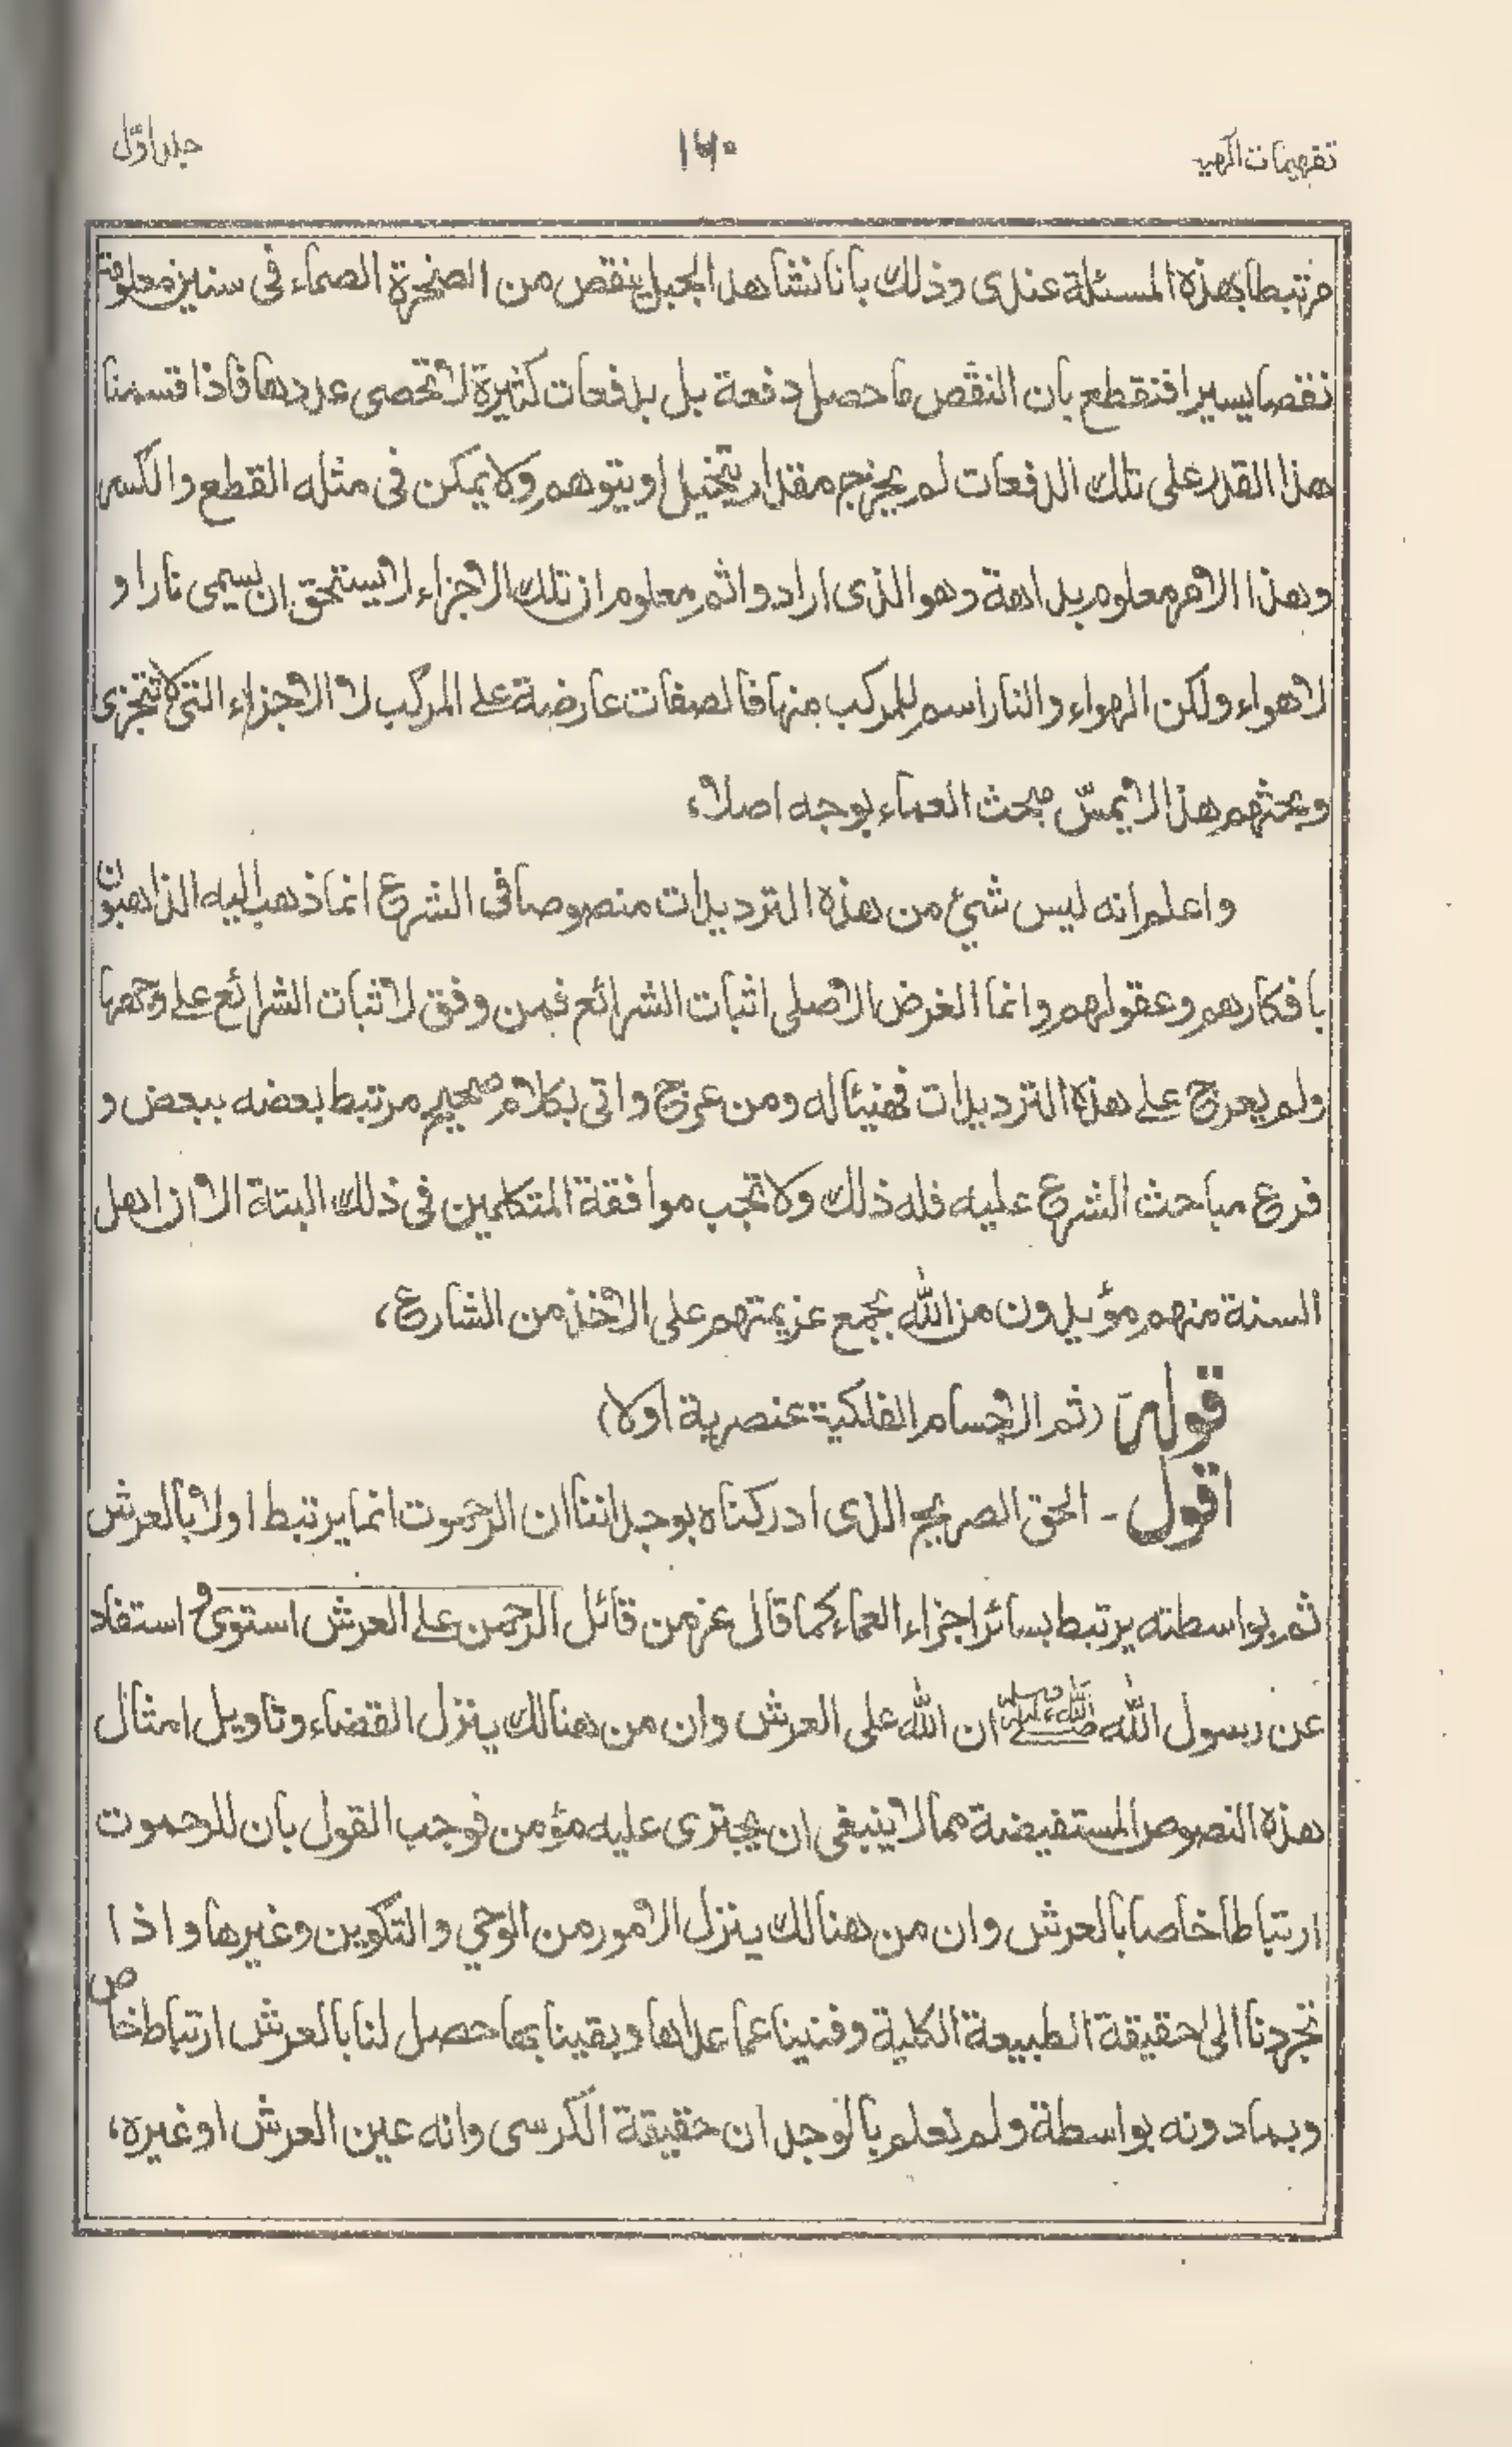 تفهيمات الٰهيه ١٦٠ جلد اوّل
مرتبطا بهذه المسئلة عندى وذلك بانا نشاهد الجبل ينقص من الصخرة الصماء فى سنين معلومة
نقصا يسيرا فنقطع بان النقص ما حصل دفعة بل بدفعات كثيرة لا تحصى عددها فاذا قسمنا
هذا القدر على تلك الدفعات لم يخرج مقدار يتخيل او يتوهم ولا يمكن فى مثله القطع والكسر
وهذا الامر معلوم بداهة وهو الذى ارادوا ثم معلوم ان تلك الاجزاء لا يستحق ان يسمى نارا و
لا هواء ولكن الهواء والنار اسم للمركب منها فالصفات عارضة على المركب لا الاجزاء التى لا تتجزى
وبحثهم هذا لا يمسّ مبحث العماء بوجه اصلا،
واعلم انه ليس شئ من هذه الترديدات منصوصا فى الشرع انما ذهب اليه الذاهبون
بافكارهم وعقولهم وانما الغرض الاصلى اثبات الشرائع فمن وفق لاثبات الشرائع على وجهها
ولم يعرج على هذه الترديدات فهنيئا له ومن عرج واتى بكلام صحيح مرتبط بعضه ببعض و
فرع مباحث الشرع عليه فله ذلك ولا تجب موافقة المتكلمين فى ذلك البتة الا ان اهل
السنة منهم مؤيدون من الله بجمع عزيمتهم على الاخذ من الشارع،
قوله (ثم الاجسام الفلكية عنصرية اولا)
اقول - الحق الصريح الذى ادركناه بوجداننا ان الرحموت انما يرتبط اولا بالعرش
ثم بواسطته يرتبط بسائر اجزاء العماء كما قال عز من قائل الرحمن على العرش استوى و استفاد
عن رسول الله صلى الله عليه وسلم ان الله على العرش وان من هنالك ينزل القضاء وتاويل امثال
هذه النصوص المستفيضة مما لا ينبغى ان يجترى عليه مؤمن فوجب القول بان للرحموت
ارتباطا خاصا بالعرش وان من هنالك ينزل الامور من الوحي والتكوين وغيرها واذا
تجردنا الى حقيقة الطبيعة الكلية وفنينا عما عداها وبقينا بها حصل لنا بالعرش ارتباط خاص
وبما دونه بواسطة ولم نعلم بالوجدان حقيقة الكرسى وانه عين العرش او غيره،